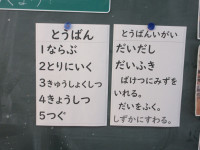 とうばん
1ならぶ
2とりにいく
3きゅうしょくしつ
4きょうしつ
5つぐ
とうばんいがい
だいだし
だいふき
ばけつにみずを
いれる。
だいをふく。
しずかにすわる。